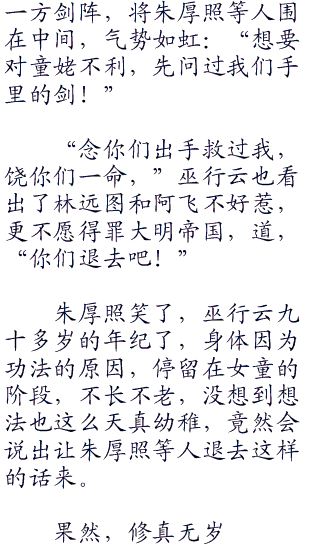 一方剑阵，将朱厚照等人围
在中间，气势如虹：“想要
对童姥不利，先问过我们手
里的剑！”
“念你们出手救过我，
饶你们一命，”巫行云也看
出了林远图和阿飞不好惹，
更不愿得罪大明帝国，道，
“你们退去吧！”
朱厚照笑了，巫行云九
十多岁的年纪了，身体因为
功法的原因，停留在女童的
阶段，不长不老，没想到想
法也这么天真幼稚，竟然会
说出让朱厚照等人退去这样
的话来。
果然，修真无岁